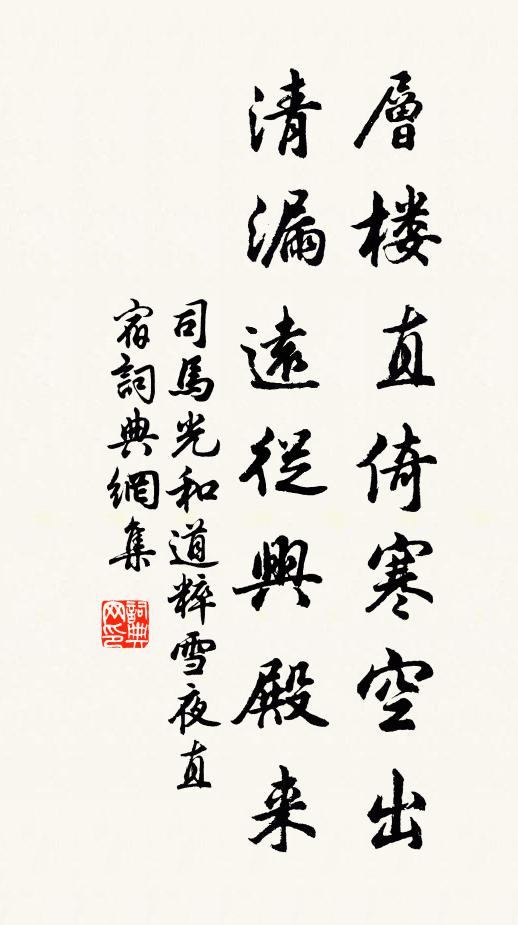 層楼直倚寒空出
清漏遠從興殿来
司馬光和道粹雪夜直
宿詞典網集
詞典
网印